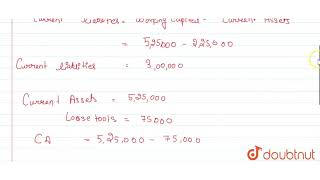 Current liabilities = Working Capital - Current Assets
= 5,25,000 - 2,25,000
Current liabilities = 3,00,000
Current Assets = 5,25,000
Loose tools = 75000
CA = 5,25,000 - 75,000
doubtnut